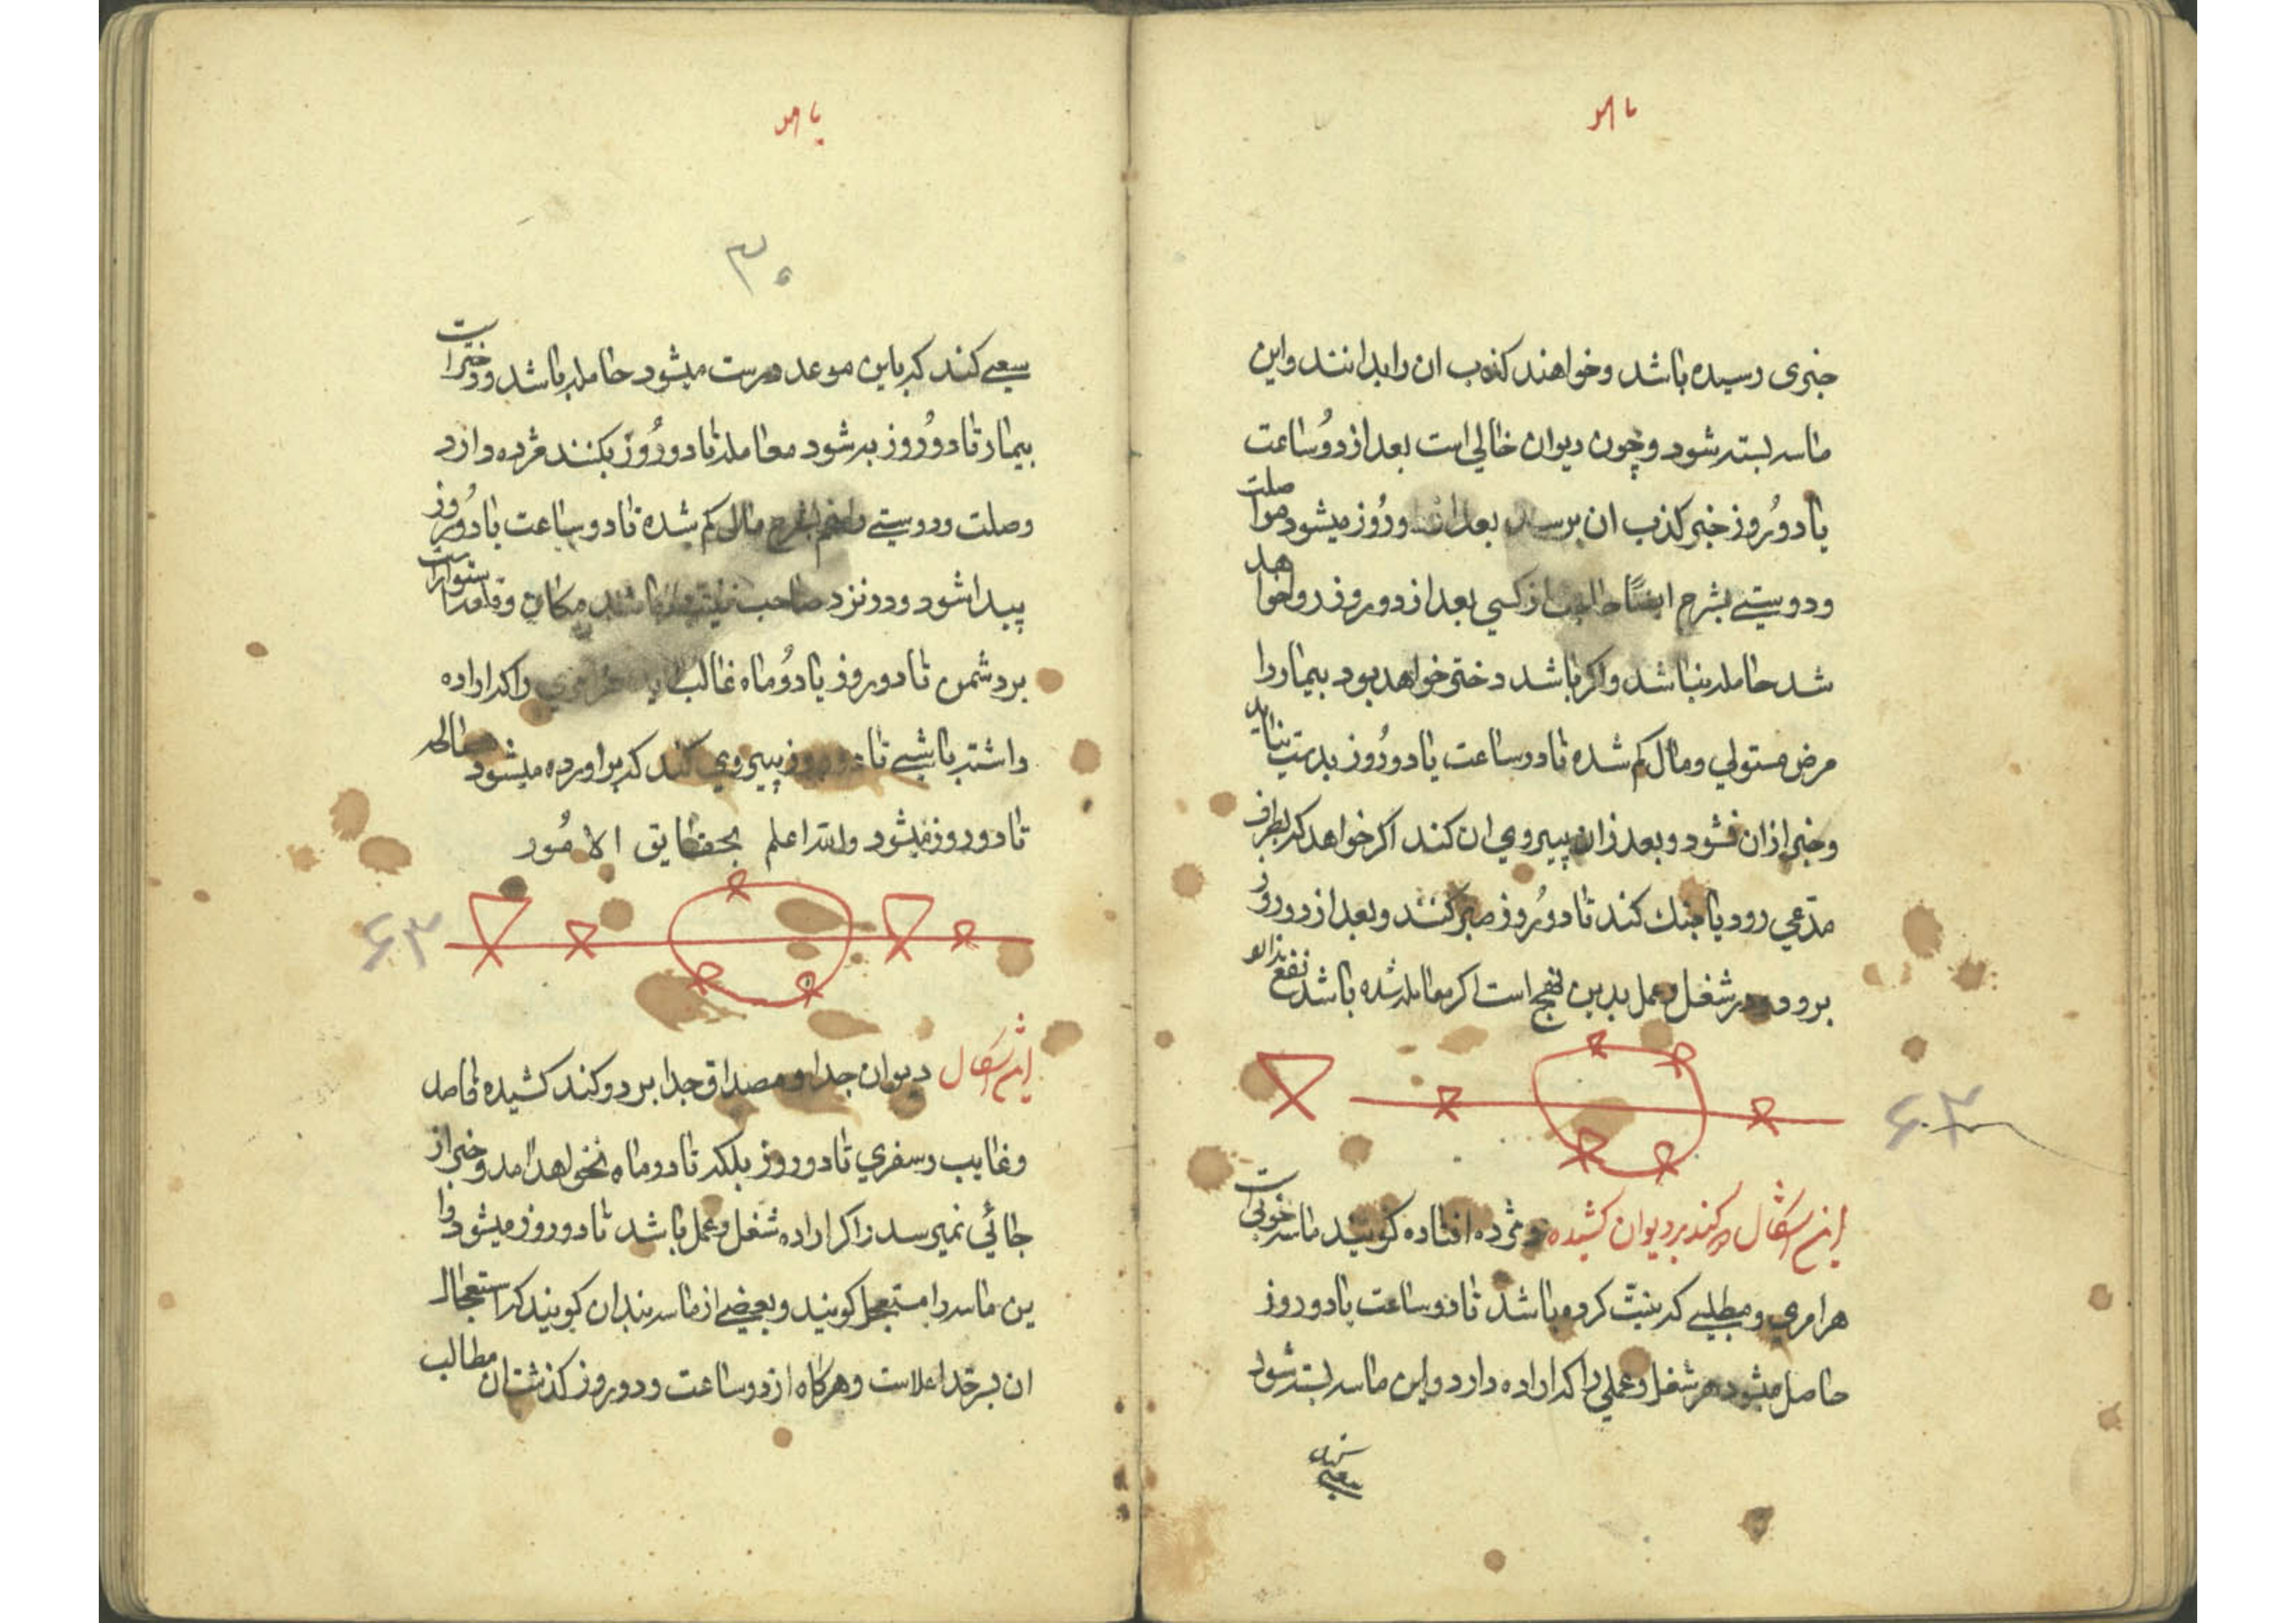 خبری رسیده باشد وخواهند کذب ان را بدانند واین
ماسه بسته شود وچون دیوان خالی است بعد از دوُساعت
یا دوُروز خبر کذب ان برسد بعد از دوروز میشود مواصلت
ودوستی بشرح ایضًا از کسی بعد از دو روز دوا خواهد
شد حامله نباشد واکر باشد دختر خواهد بود بیمار را
مرض مستولی ومال کم شده تا دوساعت یا دوروز بدست نیاید
وخبر از ان نشود وبعد زان پیروی ان کند اکر خواهد که بطرف
مدّعی رود یا جنك کند تا دوُروز صبر کند وبعد از دوروز
برود ودر شغل وعمل بدین نهج است اکر معامله شده باشد نفع
این اشکال بر کند بر دیوان کشیده ومژده افتاده کویند ماسه خوبی است
هر امری ومطلبی که نیت کرده باشد تا دوساعت یا دو روز
حاصل میشود هر شغل وعملی را که اراده دارد واین ماسه بسته شود
سعی
۳۰
سعی کند که باین موعد درست میشود حامله باشد ودختر است
بیمار تا دوُروز به شود معامله تا دوروُز بکنند مژده دارد
وصلت ودوستی مال کم شده تا دوساعت یا دوُروز
پیدا شود ودر نزد صاحب باشد مکان
بر دشمن تا دوروز یا دوُماه غالب را که اراده
داشته باشی تا دوروز پیروی کند که براورده میشود
تا دوروز میشود والله اعلم بحقایق الامُور
۶۳
این اشکال دیوان جدا ومصداق جدا بر دو کند کشیده
وغایب وسفری تا دوروز بلکه تا دو ماه نخواهد امد وخبر از
جائی نمیرسد واکر اراده شغل وعمل باشد تا دوروز میشود وا
ین ماسه را مستعجل کویند وبعضی از ماسه بندان کویند که استعجال
ان بر خدا علاست وهرکاه از دوساعت ودوروز کذشت ان مطالب